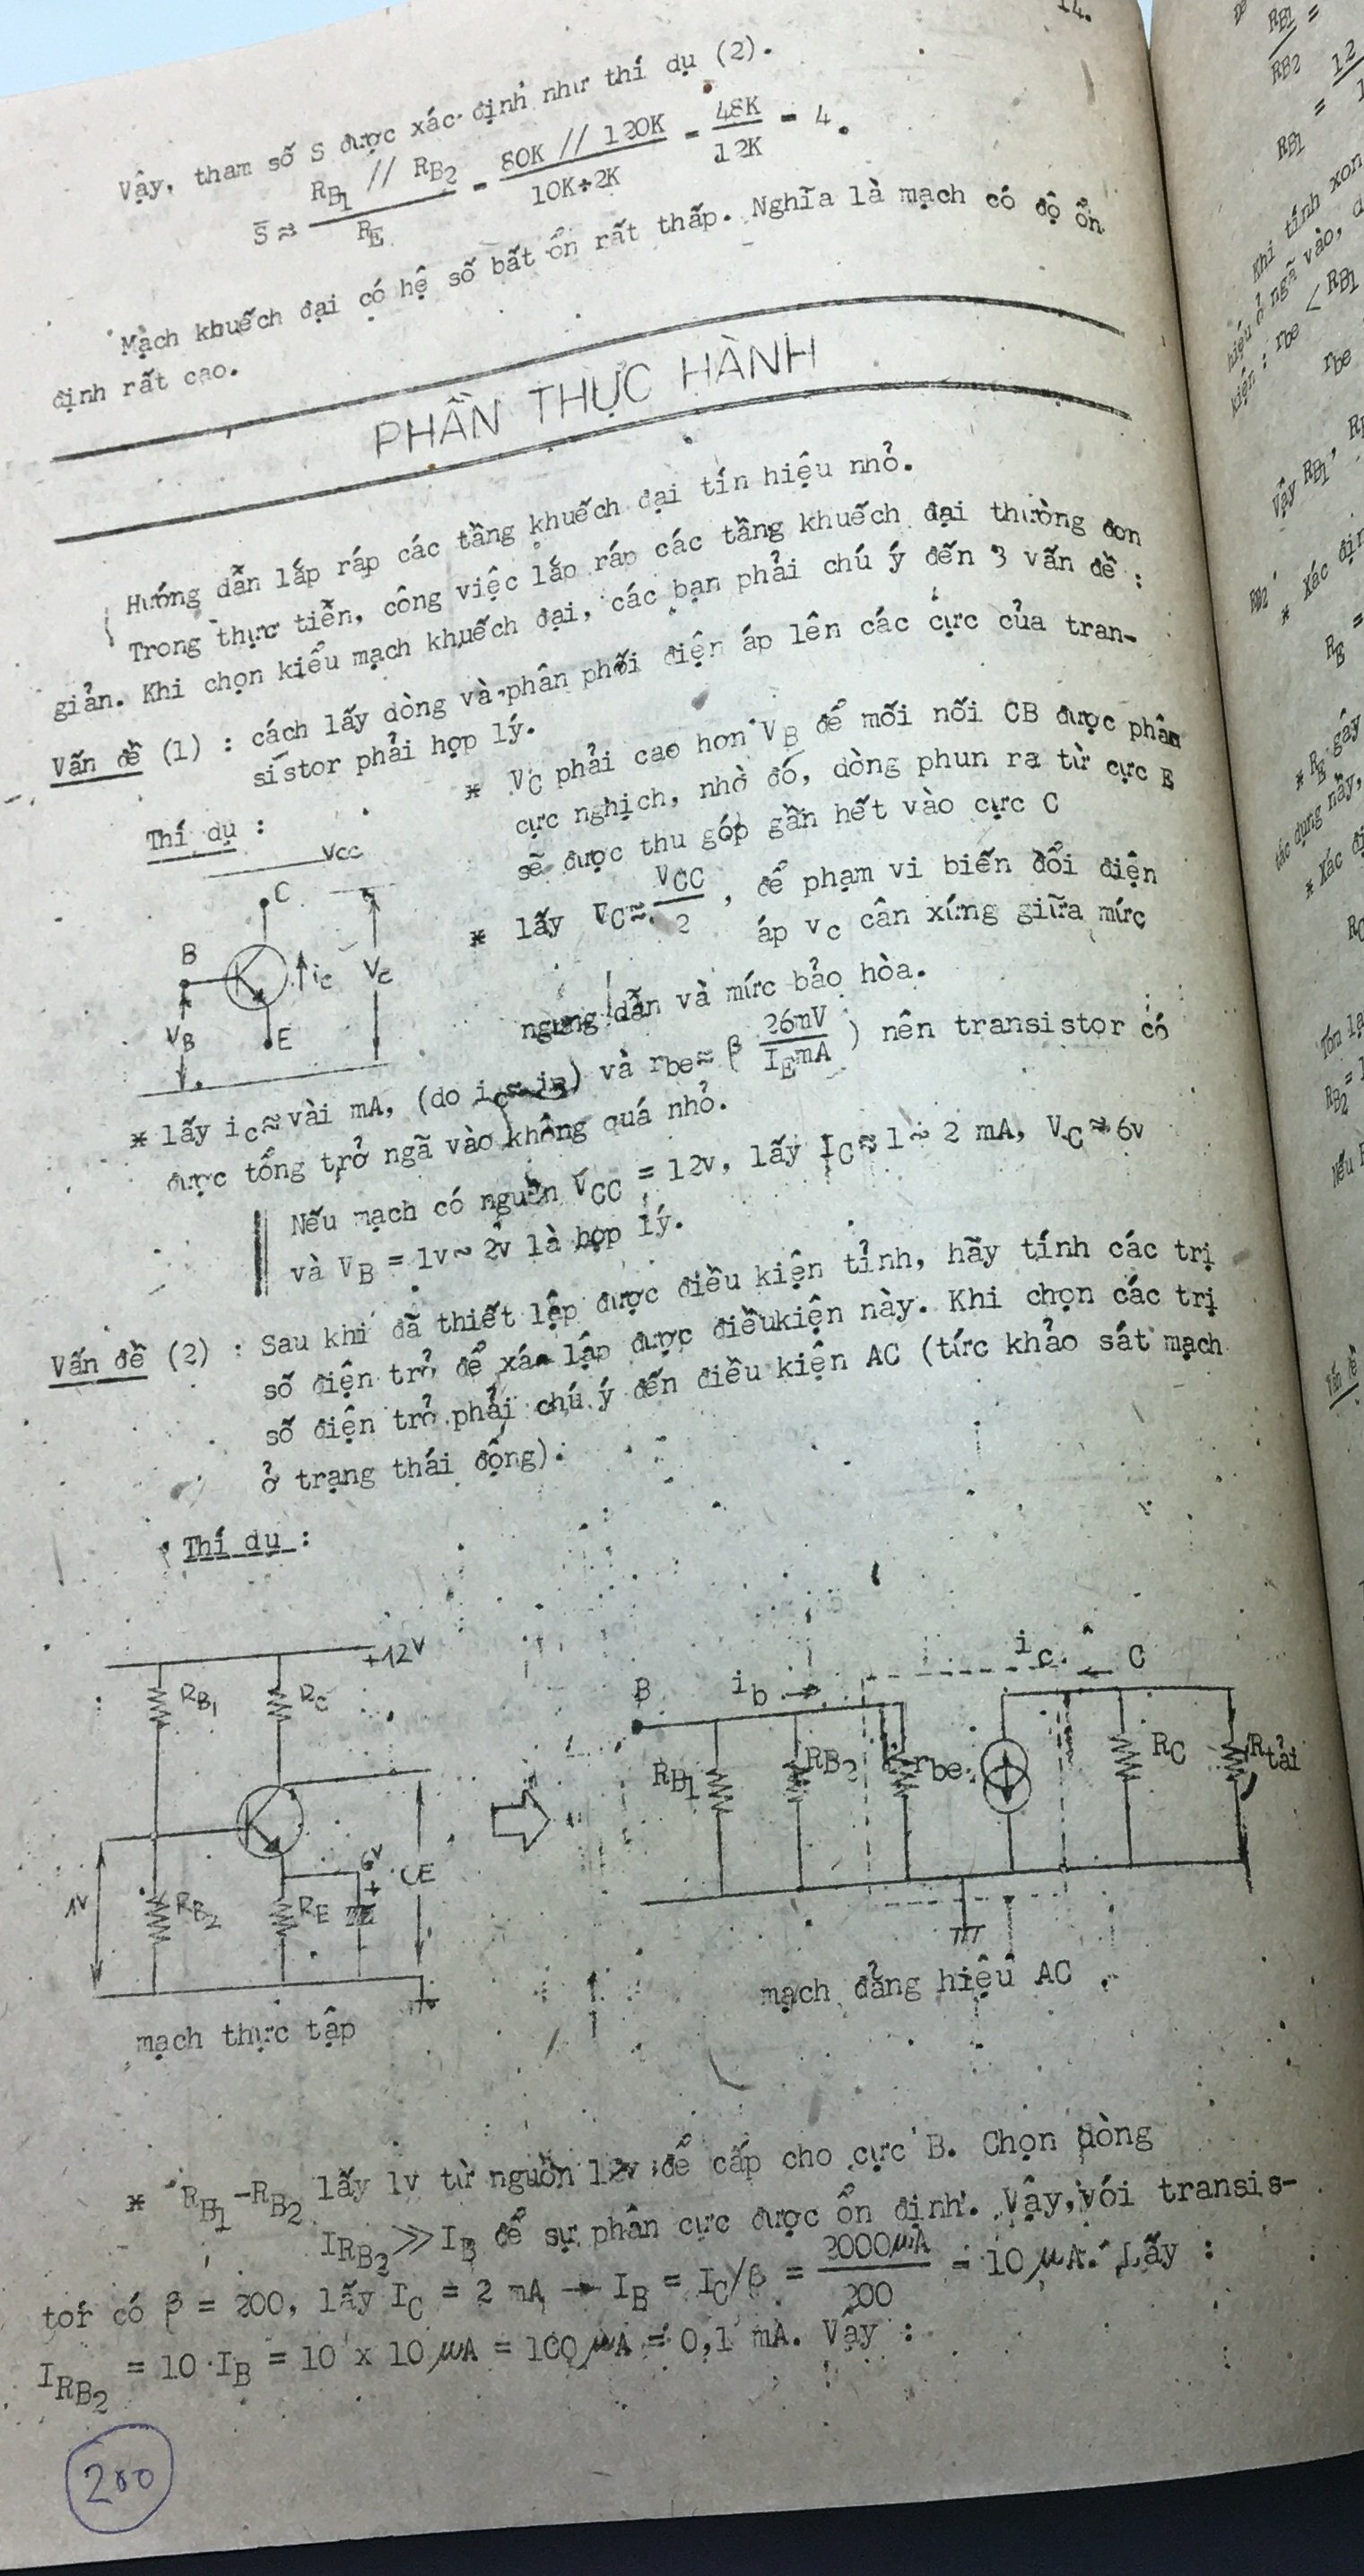 14.
Vậy, tham số S được xác định như thí dụ (2).
S ≈ RB1 // RB2 / RE = 80K // 120K / 10K+2K = 48K / 12K = 4.
Mạch khuếch đại có hệ số bất ổn rất thấp. Nghĩa là mạch có độ ổn
định rất cao.
PHẦN THỰC HÀNH
Hướng dẫn lắp ráp các tầng khuếch đại tín hiệu nhỏ.
Trong thực tiễn, công việc lắp ráp các tầng khuếch đại thường đơn
giản. Khi chọn kiểu mạch khuếch đại, các bạn phải chú ý đến 3 vấn đề :
Vấn đề (1) : cách lấy dòng và phân phối điện áp lên các cực của tran-
sistor phải hợp lý.
Thí dụ :
VCC
C
B
ic
VC
VB
E
* VC phải cao hơn VB để mối nối CB được phân
cực nghịch, nhờ đó, dòng phun ra từ cực E
sẽ được thu góp gần hết vào cực C
* lấy VC ≈ VCC / 2 , để phạm vi biến đổi điện
áp vc cân xứng giữa mức
ngưng dẫn và mức bảo hòa.
* lấy ic ≈ vài mA, (do ic ≈ iE) và rbe ≈ β 26mV / IEmA ) nên transistor có
được tổng trở ngã vào không quá nhỏ.
Nếu mạch có nguồn VCC = 12v, lấy IC ≈ 1 ~ 2 mA, VC ≈ 6v
và VB = 1v ~ 2v là hợp lý.
Vấn đề (2) : Sau khi đã thiết lập được điều kiện tỉnh, hãy tính các trị
số điện trở để xác lập được điềukiện này. Khi chọn các trị
số điện trở phải chú ý đến điều kiện AC (tức khảo sát mạch
ở trạng thái động).
Thí dụ :
+12V
RB1
RC
6V
CE
1V
RB2
RE
mạch thực tập
B
ib
ic
C
RB1
RB2
rbe
RC
Rtải
mạch đẳng hiệu AC
* RB1-RB2 lấy 1v từ nguồn 12v để cấp cho cực B. Chọn dòng
IRB2 ≫ IB để sự phân cực được ổn định. Vậy, với transis-
tor có β = 200, lấy IC = 2 mA → IB = IC/β = 2000μA / 200 = 10 μA. Lấy :
IRB2 = 10.IB = 10 x 10 μA = 100 μA = 0,1 mA. Vậy :
200
RB1 =
RB2
12
RB1 =
Khi tính xon
hiệu ở ngã vào,
kiện : rbe < RB1
rbe
Vậy RB1,
RB2
* Xác địn
RE =
* RE gây
tác dụng này,
* Xác đị
RC
RB2 =
Nếu